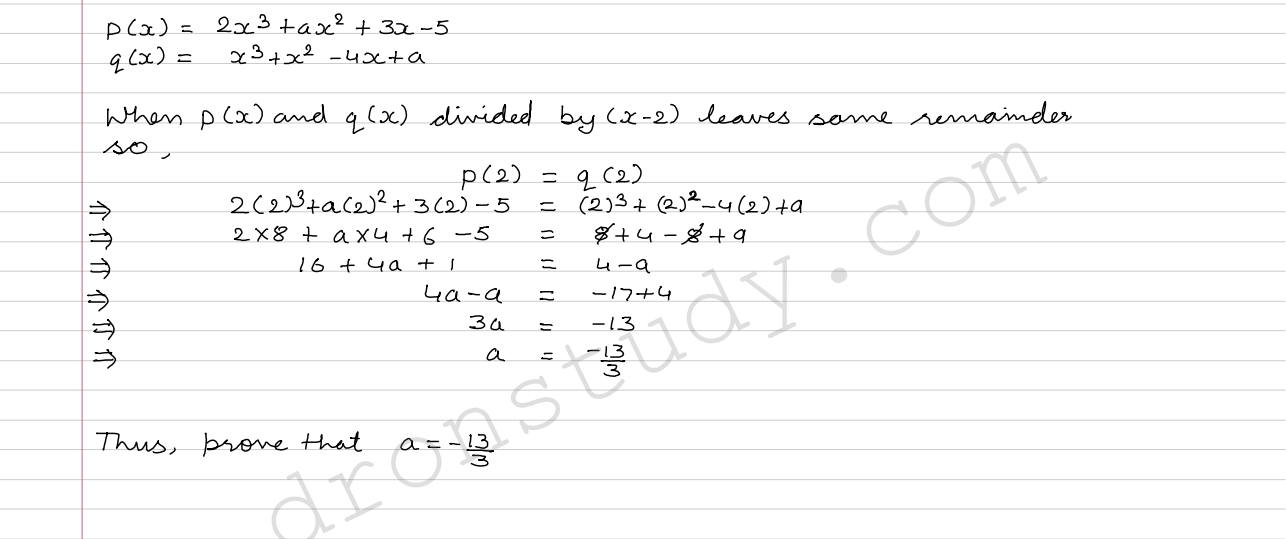 p(x) = 2x³ + ax² + 3x - 5
q(x) = x³ + x² - 4x + a
When p(x) and q(x) divided by (x-2) leaves same remainder
so,
p(2) = q(2)
⇒ 2(2)³ + a(2)² + 3(2) - 5 = (2)³ + (2)² - 4(2) + a
⇒ 2×8 + a×4 + 6 - 5 = 8 + 4 - 8 + a
⇒ 16 + 4a + 1 = 4 - a
⇒ 4a - a = -17 + 4
⇒ 3a = -13
⇒ a = -13/3
Thus, prove that a = -13/3
dronstudy.com